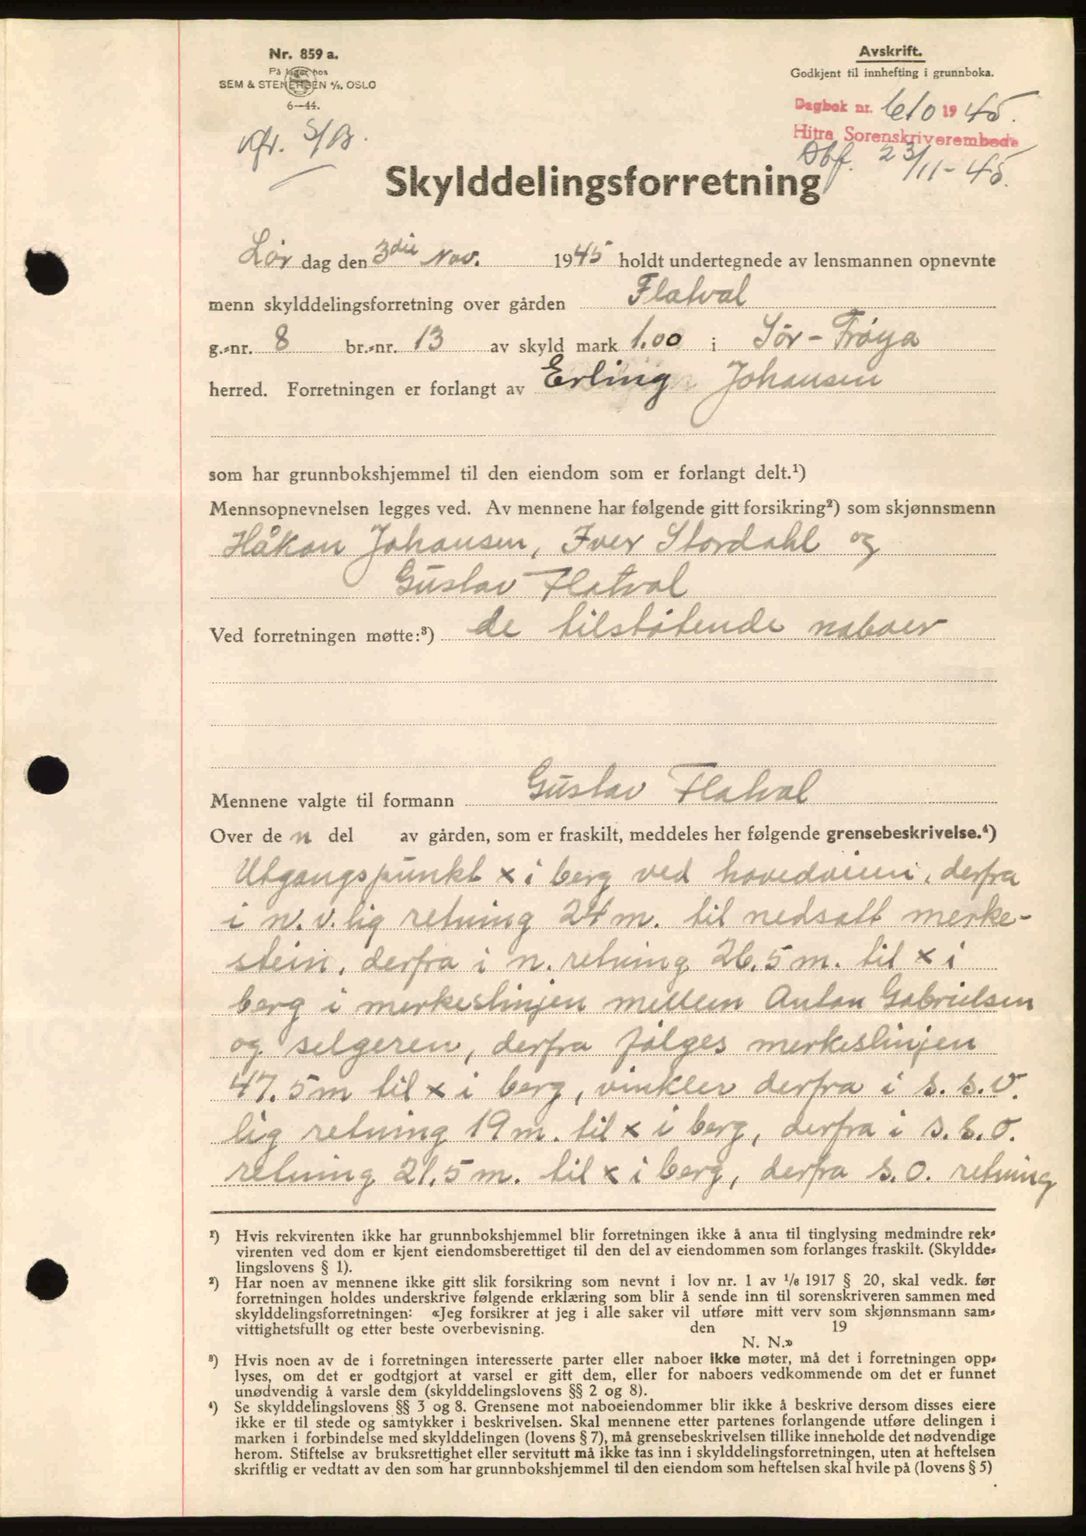 Nr. 859 a.
På lager hos
SEM & STENERSEN A/S, OSLO
6—44.
Avskrift.
Godkjent til innhefting i grunnboka.
Dagbok nr. 610 1945.
Hitra Sorenskriverembede
Dbf. 23/11-45.
Skylddelingsforretning
Lør dag den 3die Nov. 1945 holdt undertegnede av lensmannen opnevnte
menn skylddelingsforretning over gården Flatval
g.-nr. 8 br.-nr. 13 av skyld mark 1.00 i Sör-Frøya
herred. Forretningen er forlangt av Erling Johansen
som har grunnbokshjemmel til den eiendom som er forlangt delt.¹)
Mennsopnevnelsen legges ved. Av mennene har følgende gitt forsikring²) som skjønnsmenn
Håkon Johansen, Iver Stordahl og
Gustav Flatval
Ved forretningen møtte:³) de tilstøtende naboer
Mennene valgte til formann Gustav Flatval
Over de n del av gården, som er fraskilt, meddeles her følgende grensebeskrivelse.⁴)
Utgangspunkt x i berg ved hovedveien, derfra
i n.v.lig retning 24 m. til nedsatt merke-
stein, derfra i n. retning 26.5 m. til x i
berg i merkeslinjen mellem Anton Gabrielsen
og selgeren, derfra følges merkeslinjen
47.5 m til x i berg, vinkler derfra i s.s.v.
lig retning 19 m. til x i berg, derfra i s.s.o.
retning 21.5 m. til x i berg, derfra s.o. retning
¹) Hvis rekvirenten ikke har grunnbokshjemmel blir forretningen ikke å anta til tinglysing medmindre rek-
virenten ved dom er kjent eiendomsberettiget til den del av eiendommen som forlanges fraskilt. (Skyldde-
lingslovens § 1).
²) Har noen av mennene ikke gitt slik forsikring som nevnt i lov nr. 1 av 1/6 1917 § 20, skal vedk. før
forretningen holdes underskrive følgende erklæring som blir å sende inn til sorenskriveren sammen med
skylddelingsforretningen: «Jeg forsikrer at jeg i alle saker vil utføre mitt verv som skjønnsmann sam-
vittighetsfullt og etter beste overbevisning. den 19
N. N.»
³) Hvis noen av de i forretningen interesserte parter eller naboer ikke møter, må det i forretningen opp-
lyses, om det er godtgjort at varsel er gitt dem, eller for naboers vedkommende om det er funnet
unødvendig å varsle dem (skylddelingslovens §§ 2 og 8).
⁴) Se skylddelingslovens §§ 3 og 8. Grensene mot naboeiendommer blir ikke å beskrive dersom disses eiere
ikke er til stede og samtykker i beskrivelsen. Skal mennene etter partenes forlangende utføre delingen i
marken i forbindelse med skylddelingen (lovens § 7), må grensebeskrivelsen tillike inneholde det nødvendige
herom. Stiftelse av bruksrettighet eller servitutt må ikke tas inn i skylddelingsforretningen, uten at heftelsen
skriftlig er vedtatt av den som har grunnbokshjemmel til den eiendom som heftelsen skal hvile på (lovens § 5)